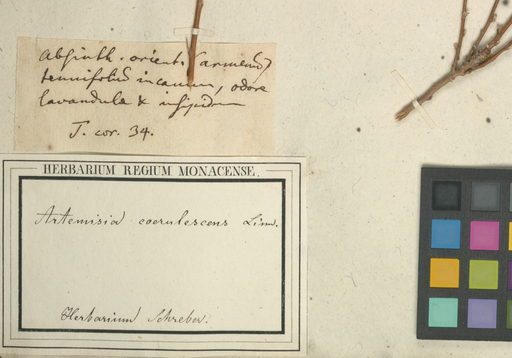 Absinth. orient. (armenu)
tenuifoliu incanum, odore
lavandulæ & insipidum
T. cor. 34.
HERBARIUM REGIUM MONACENSE.
Artemisia coerulescens Linn.
Herbarium Schreber.